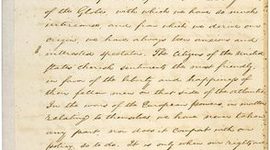 of the Globe with which we have so much
intercourse and from which we derive our
origin, we have always been anxious and
interested spectators. The Citizens of the United
States cherish sentiments the most friendly
in favor of the liberty and happiness of
their fellow men on that side of the Atlantic.
In the wars of the European powers in matters
relating to themselves we have never taken
any part nor does it comport with our
policy, so to do. It is only when our rights are